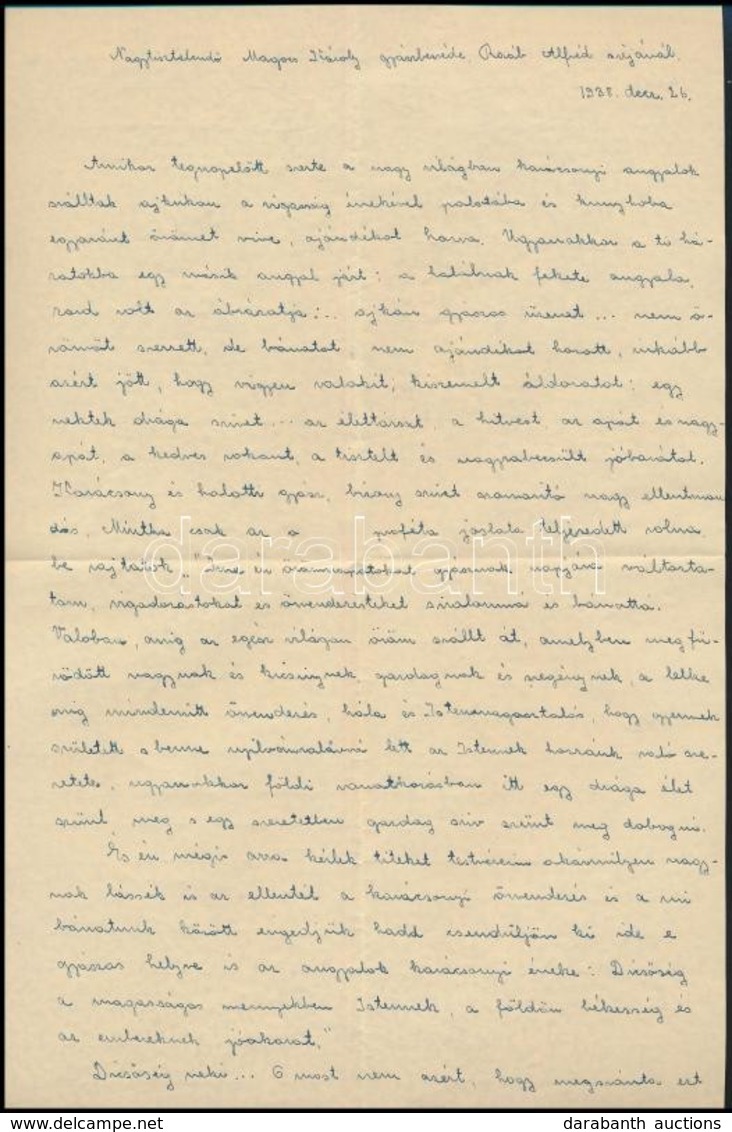 Nagytiszteletű Magocs Károly gyászbeszéde Raáb Alfréd sírjánál.
1938. decz. 26.
Amikor tegnapelőtt szerte a nagy világban karácsonyi angyalok
szálltak ajkukon a vigasság énekével palotába és kunyhóba
egyaránt örömet vive, ajándékot hozva. Ugyanakkor a ti há-
zatokba egy másik angyal járt: a halálnak fekete angyala,
zord volt az ábrázatja... ajkán gyászos üzenet... nem ö-
römöt szerzett, de bánatot nem ajándékot hozott, inkább
azért jött, hogy vigyen valakit, kiszemelt áldozatot: egy
nektek drága szivet... az élettárszt, a hitvest, az apát és nagy-
apát, a kedves rokont, a tisztelt és nagyrabecsült jóbarátot.
Karácsony és halotti gyász, bizony szivet szomorító nagy ellentmon
dás. Mintha csak az a próféta jóslata teljesedett volna
be rajtatok „Ime én örömnapotokat gyásznak napjává változta-
tom, vigadozástokat és örvendezésteket siralommá és bánattá.
Valóban, amig az egész világon öröm szállt át, amelyben megfü-
rödött nagynak és kicsinynek, gazdagnak és szegénynek, a lelke
mig mindenütt örvendezés, hála és Istenmagasztalás, hogy gyermek
született s benne nyilvánvalóvá lett az Istennek hozzánk való sze-
retete, ugyanakkor földi vonatkozásban itt egy drága élet
szünt meg s egy szeretetben gazdag sziv szünt meg dobogni.
És én mégis arra kérlek titeket testvéreim akármilyen nagy-
nak lássék is az ellentét a karácsonyi örvendezés és a mi
bánatunk között engedjük hadd csendüljön ki ide e
gyászos helyre is az angyalok karácsonyi éneke: Dicsőség
a magasságos mennyekben Istennek, a földön békesség és
az embereknek jóakarat."
Dicsőség neki... Ő most nem azért, hogy megszánta ezt
darabanth
darabanth auctions